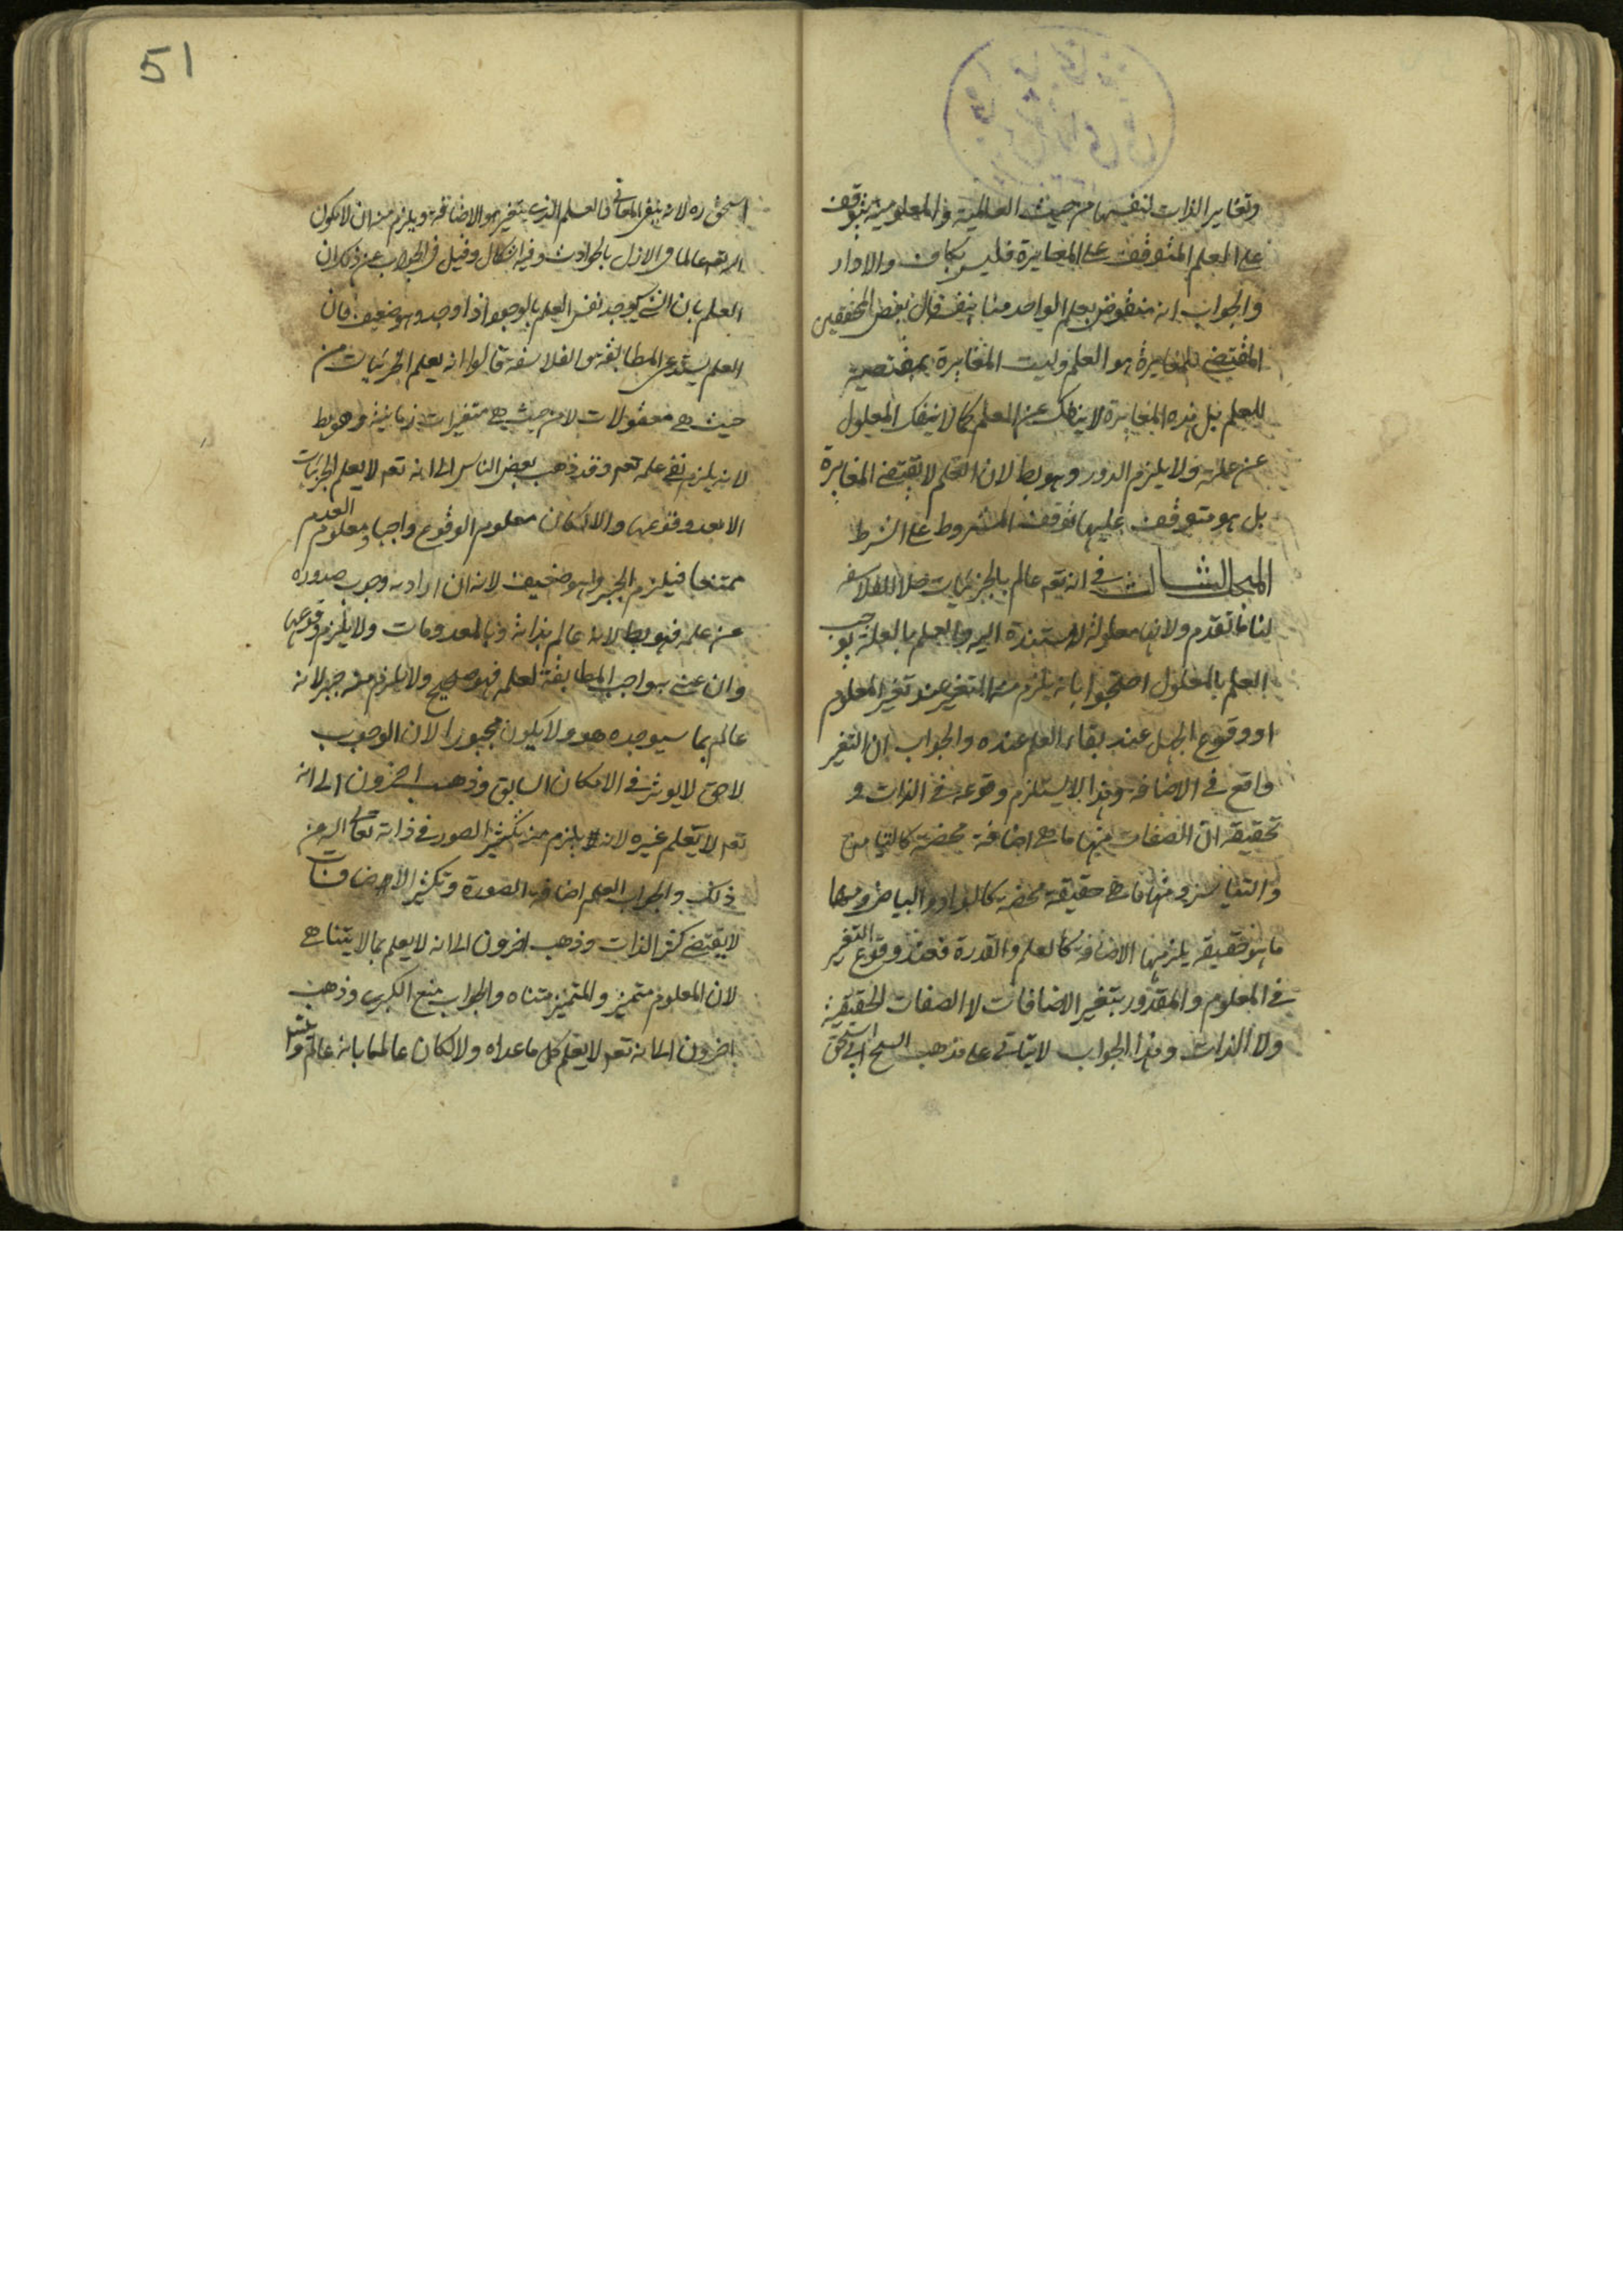 وتغاير الذات لنفسها من حيث العالمية والمعلومية يتوقف
على العلم المتوقف على المغايرة فليس بكاف والا دار
والجواب انه منقوض بعلم الواحد منا بنفسه قال بعض المحققين
المقتضى للمغايرة هو العلم وليست المغايرة بمقتضية
للعلم بل هذه المغايرة لا ينفك عن العلم كما لا ينفك المعلول
عن علته ولا يلزم الدور وهو بط لان العلم لا يقتضى المغايرة
بل هو متوقف عليها توقف المشروط على الشرط
المبحث الثالث فى انه تعه عالم بالجزئيات خلافا للفلاسفه
لنا ما تقدم ولانها معلولة له مستندة اليه والعلم بالعلة يوجب
العلم بالمعلول احتجوا بانه يلزم منه التغير عند تغير المعلوم
او وقوع الجهل عند بقاء العلم عنده والجواب ان التغير
واقع فى الاضافه وهذا لا يستلزم وقوعه فى الذات و
تحقيقه ان الصفات منها ما هى اضافة محضة كالتيامن
والتياسر ومنها ما هى حقيقة محضه كالسواد والبياض ومنها
ما هو حقيقه يلزمها الاضافه كالعلم والقدرة فعند وقوع التغير
فى المعلوم والمقدور يتغير الاضافات لا الصفات الحقيقية
ولا الذات وهذا الجواب لا يتاتى على مذهب الشيخ ابى اسحق
51
اسحق ره لانه ينفى المعانى فالعلم الذى يتغير هو الاضافة ويلزم منه ان لا يكون
الله تعه عالما فى الازل بالحوادث وفيه اشكال وقيل فى الجواب عن ذلك ان
العلم بان الشى سيوجد نفس العلم بالوجود اذا وجد وهو ضعيف فان
العلم يستدعى المطابقه والفلاسفه قالوا انه يعلم الجزئيات من
حيث هى معقولات لا من حيث هى متغيرات زمانية وهو بط
لانه يلزم نفى علمه تعه وقد ذهب بعض الناس الى انه تعه لا يعلم الجزئيات
الا بعد وقوعها والا لكان معلوم الوقوع واجبا ومعلوم العدم
ممتنعا فيلزم الجبر وهو ضعيف لانه ان اراد به وجوب صدوره
عن علمه فهو بط لانه عالم بذاته وبالمعدومات ولا يلزم وقوعها
وان عنى به واجب المطابقة لعلمه فهو صحيح ولا يلزم منه جبر لانه
عالم بما سيوجده هو ولا يكون مجبورا لان الوجوب
لاحق لا يوثر فى الامكان السابق وذهب اخرون الى انه
تعه لا يعلم غيره لانه يلزم منه تكثير الصور فى ذاته تعالى الله عن
ذلك والجواب العلم اضافه الصورة وتكثير الاضافات
لا يقتضى كثر الذات وذهب اخرون الى انه لا يعلم بما لا يتناهى
لان المعلوم متميز والمتميز متناه والجواب منع الكبرى وذهب
اخرون الى انه تعه لا يعلم كل ما عداه والا لكان عالما بانه عالم